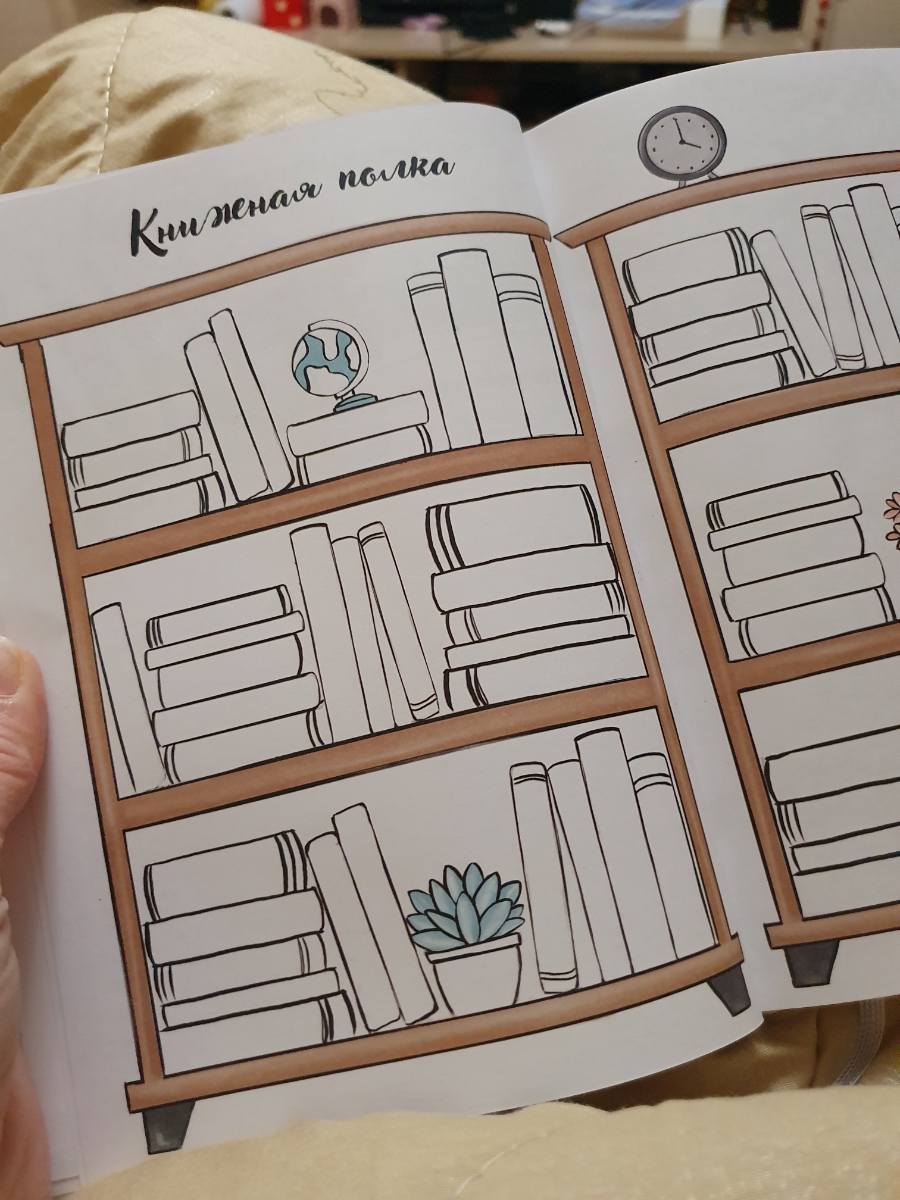 Книжная полка